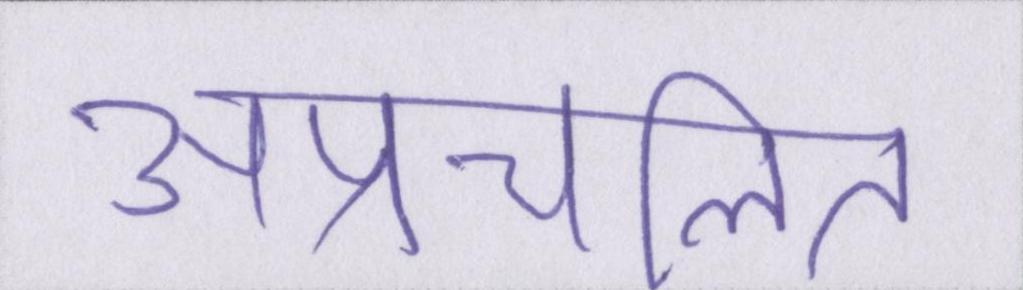 अप्रचलित